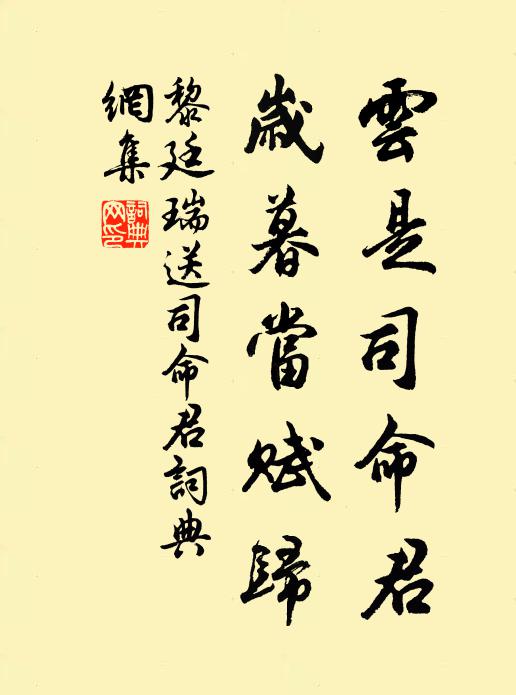 雲是司命君
歲暮當賦歸
黎廷瑞送司命君詞典
網集
詞典
网印